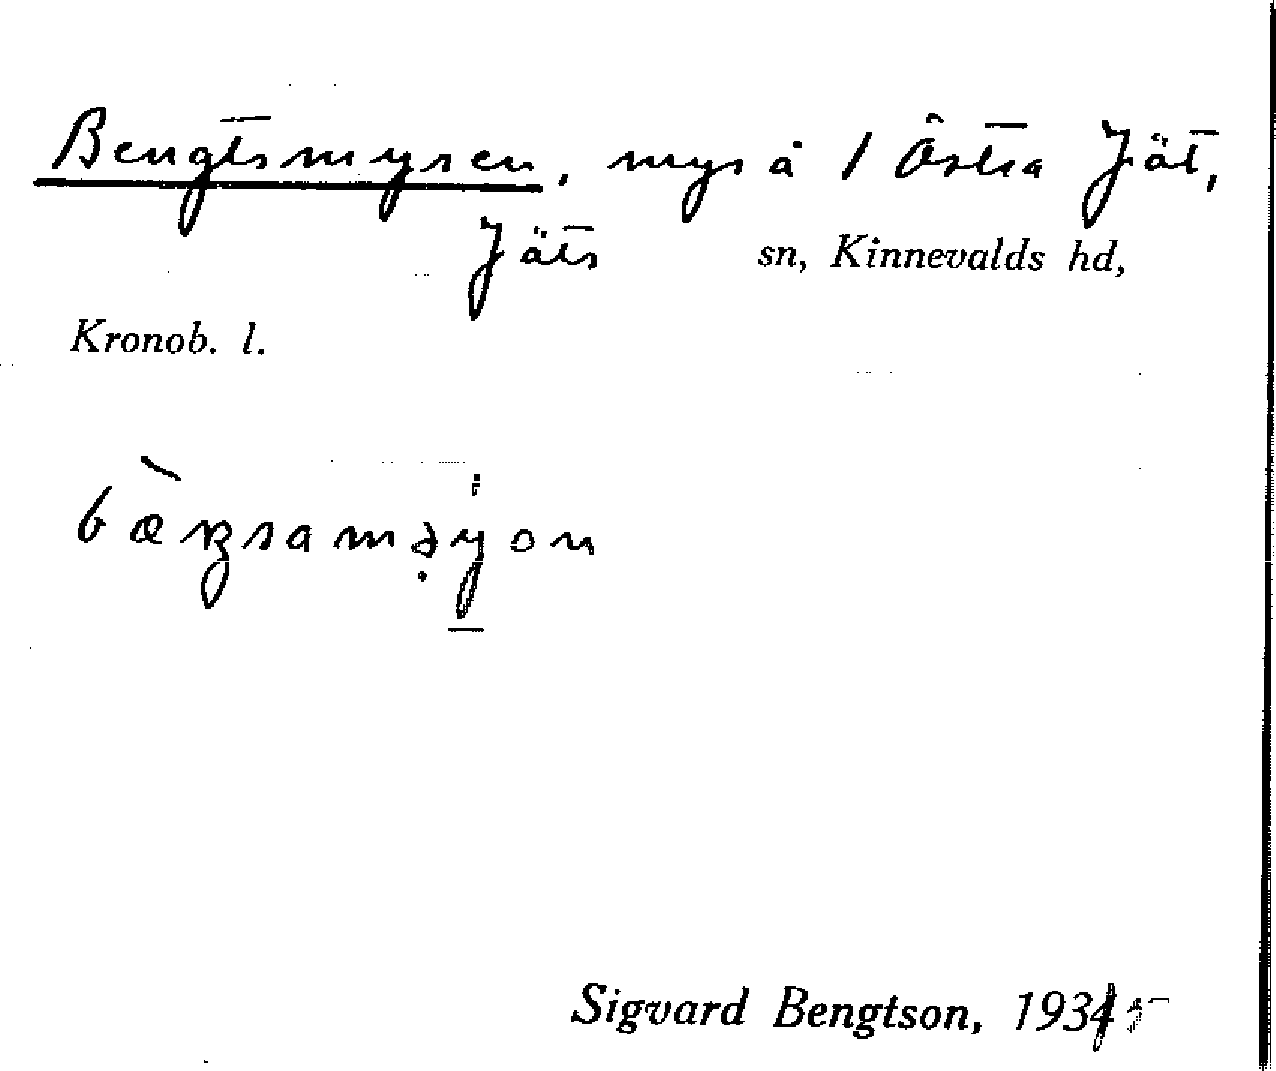 Bengtsmysen, mys å 1 Östra Jät,
Jäts sn, Kinnevalds hd,
Kronob. l.
Sigvard Bengtson, 1935